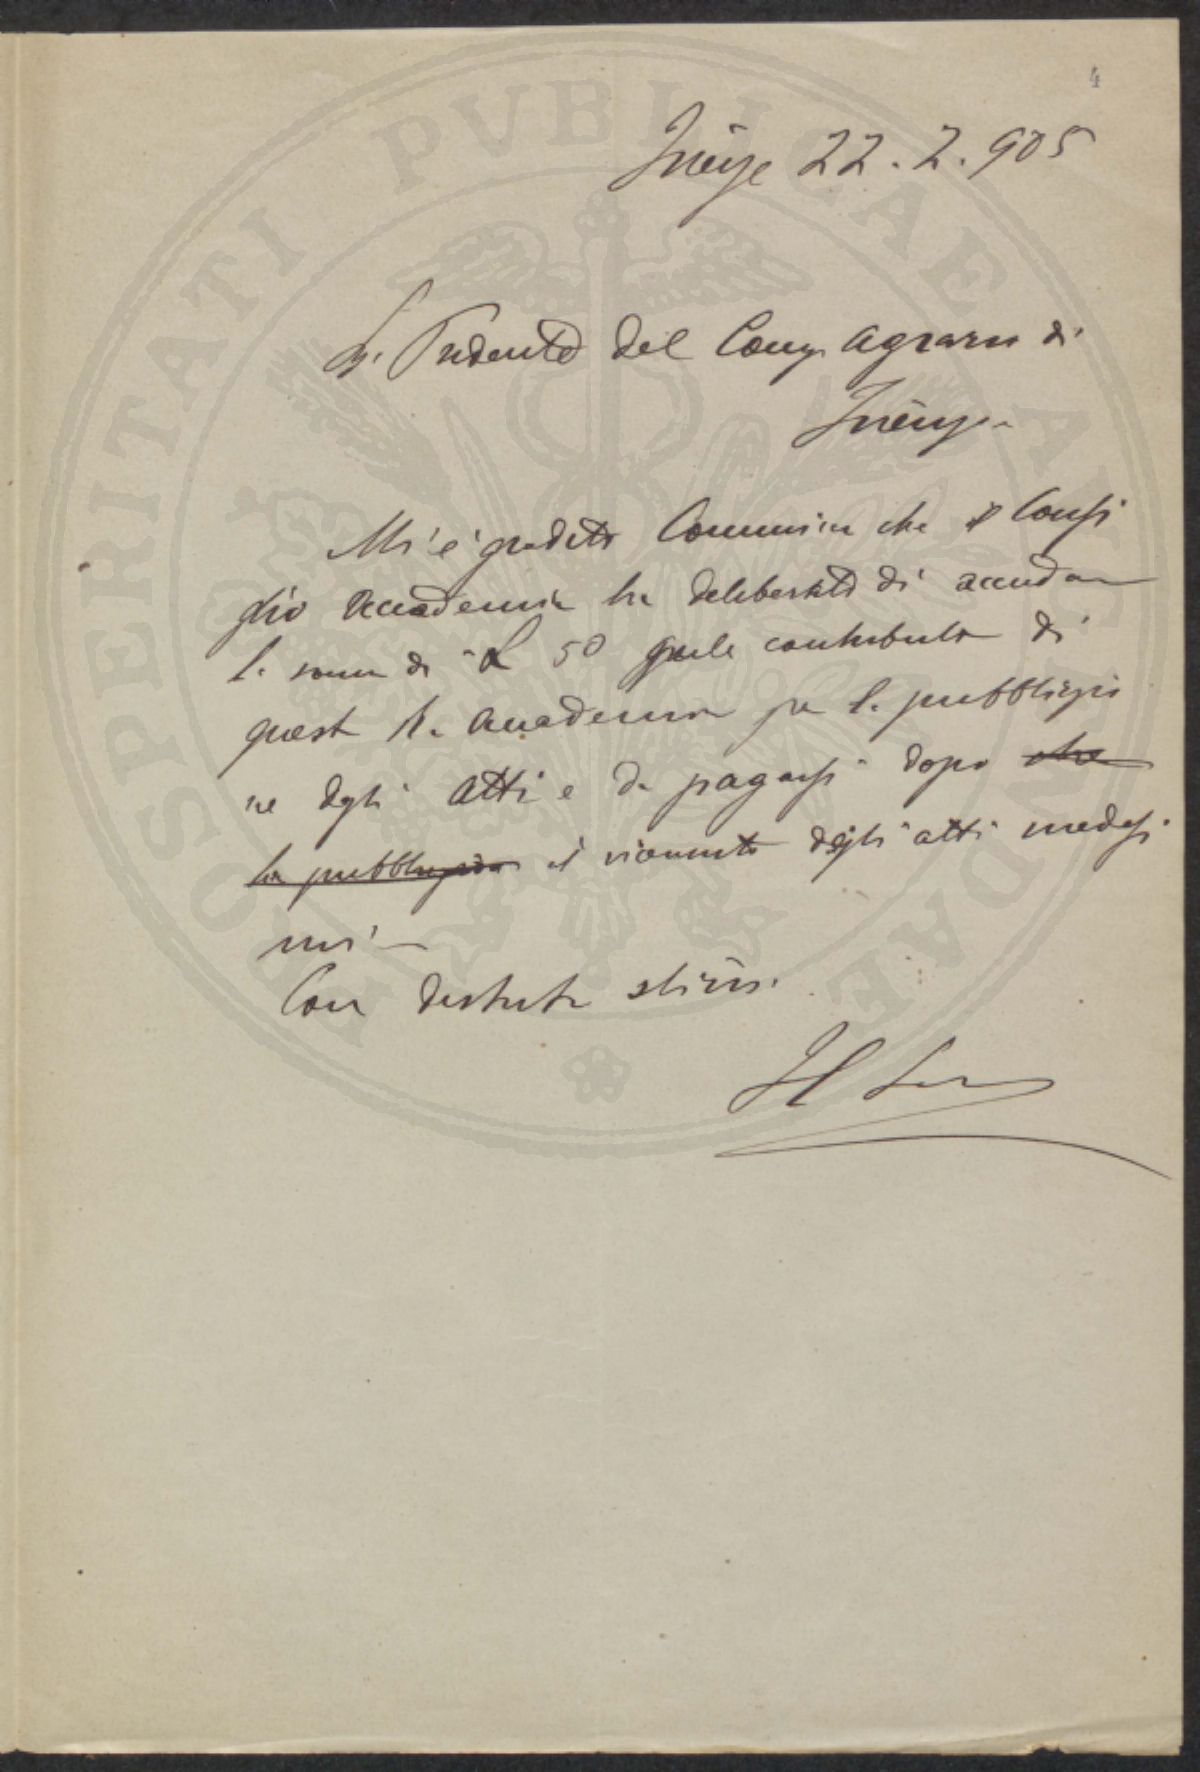 4
Firenze 22. 2. 905
Sr. Presidente del Comizio Agrario di
Firenze
Mi è gradito Comunicar che il Consi
glio Accademico ha deliberato di accordare
la somma di £ 50 quale contributo di
questa R. Accademia per la pubblicazio
ne degli Atti e da pagarsi dopo che
la pubblicazione il ricevimento degli atti medesi
mi
Con distinta stima
Il
PROSPERITATI PVBLICAE AVGENDAE